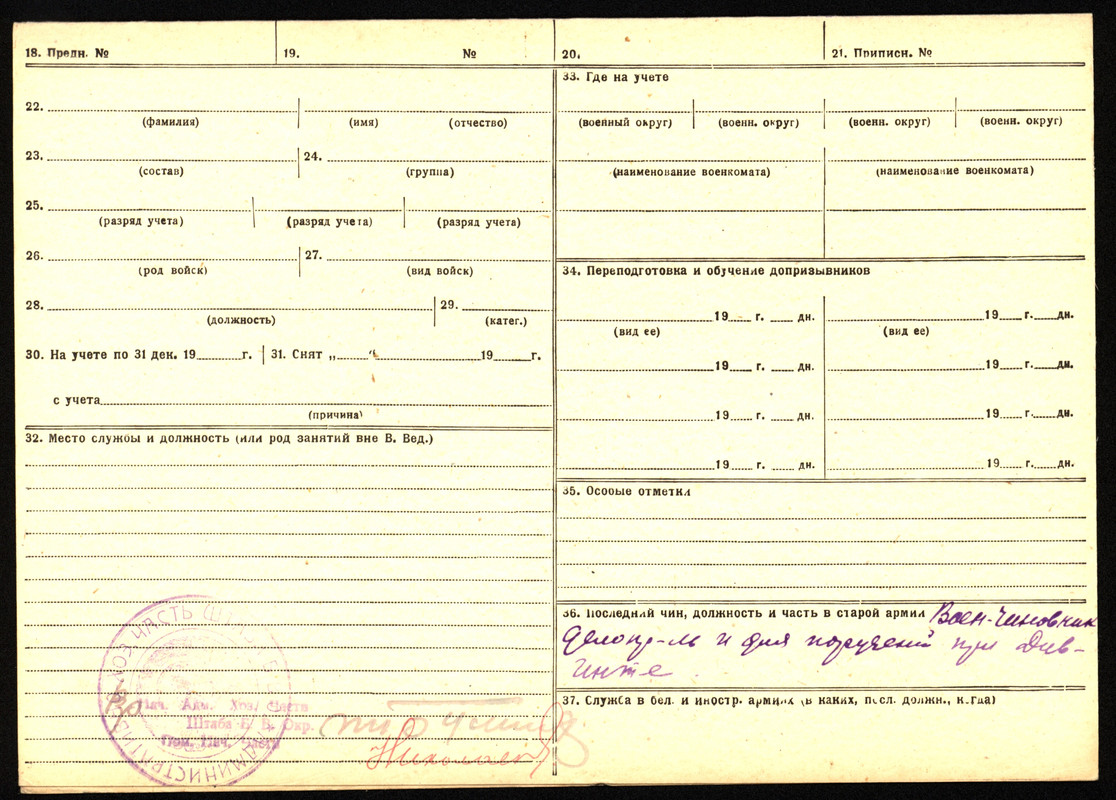 18. Предн. №
19. №
20.
21. Приписн. №
22.
(фамилия) (имя) (отчество)
23. 24.
(состав) (группа)
25.
(разряд учета) (разряд учета) (разряд учета)
26. 27.
(род войск) (вид войск)
28. 29.
(должность) (катег.)
30. На учете по 31 дек. 19 г. 31. Снят „ “ 19 г.
с учета
(причина)
32. Место службы и должность (или род занятий вне В. Вед.)
ЧАСТЬ
АДМИНИСТРАТИВ
Нач. Адм. Хоз. Части
Штаба Б. В. Окр.
Пом. Нач. Части
Николаев
33. Где на учете
(военный округ) (военн. округ) (военн. округ) (военн. округ)
(наименование военкомата) (наименование военкомата)
34. Переподготовка и обучение допризывников
19 г. дн. 19 г. дн.
(вид ее) (вид ее)
19 г. дн. 19 г. дн.
19 г. дн. 19 г. дн.
19 г. дн. 19 г. дн.
35. Особые отметки
36. Последний чин, должность и часть в старой армии Воен-чиновник
делопр-ль и для поручений при Див-
инте.
37. Служба в бел. и иностр. армиях (в каких, посл. должн., когда)